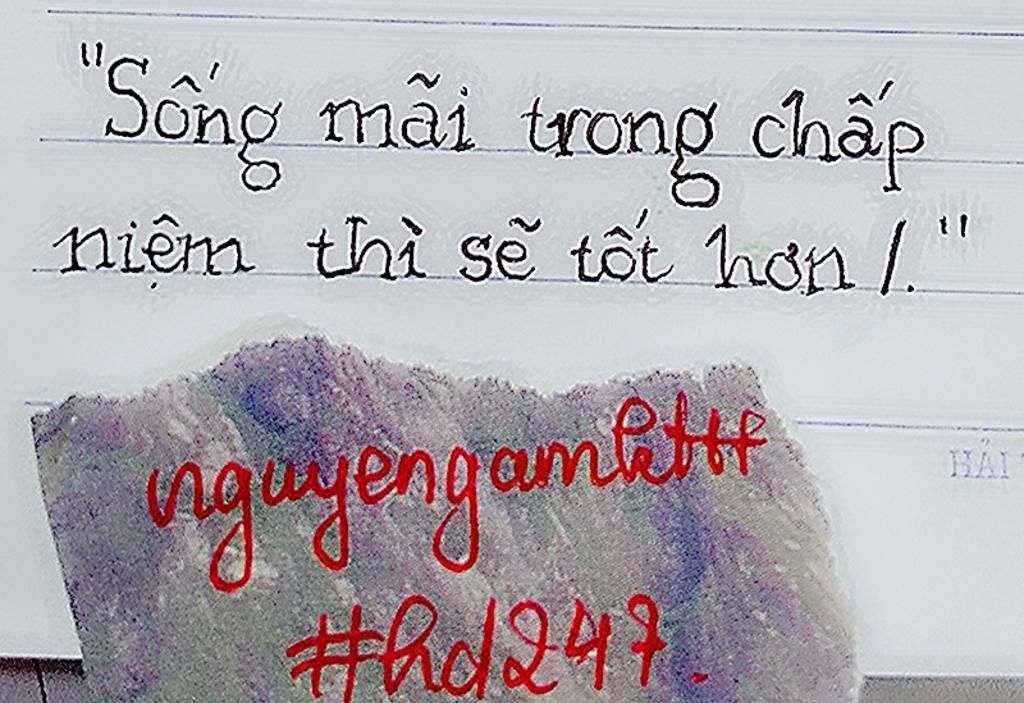 "Sống mãi trong chấp
niệm thì sẽ tốt hơn /."
HẢI
#hd247.